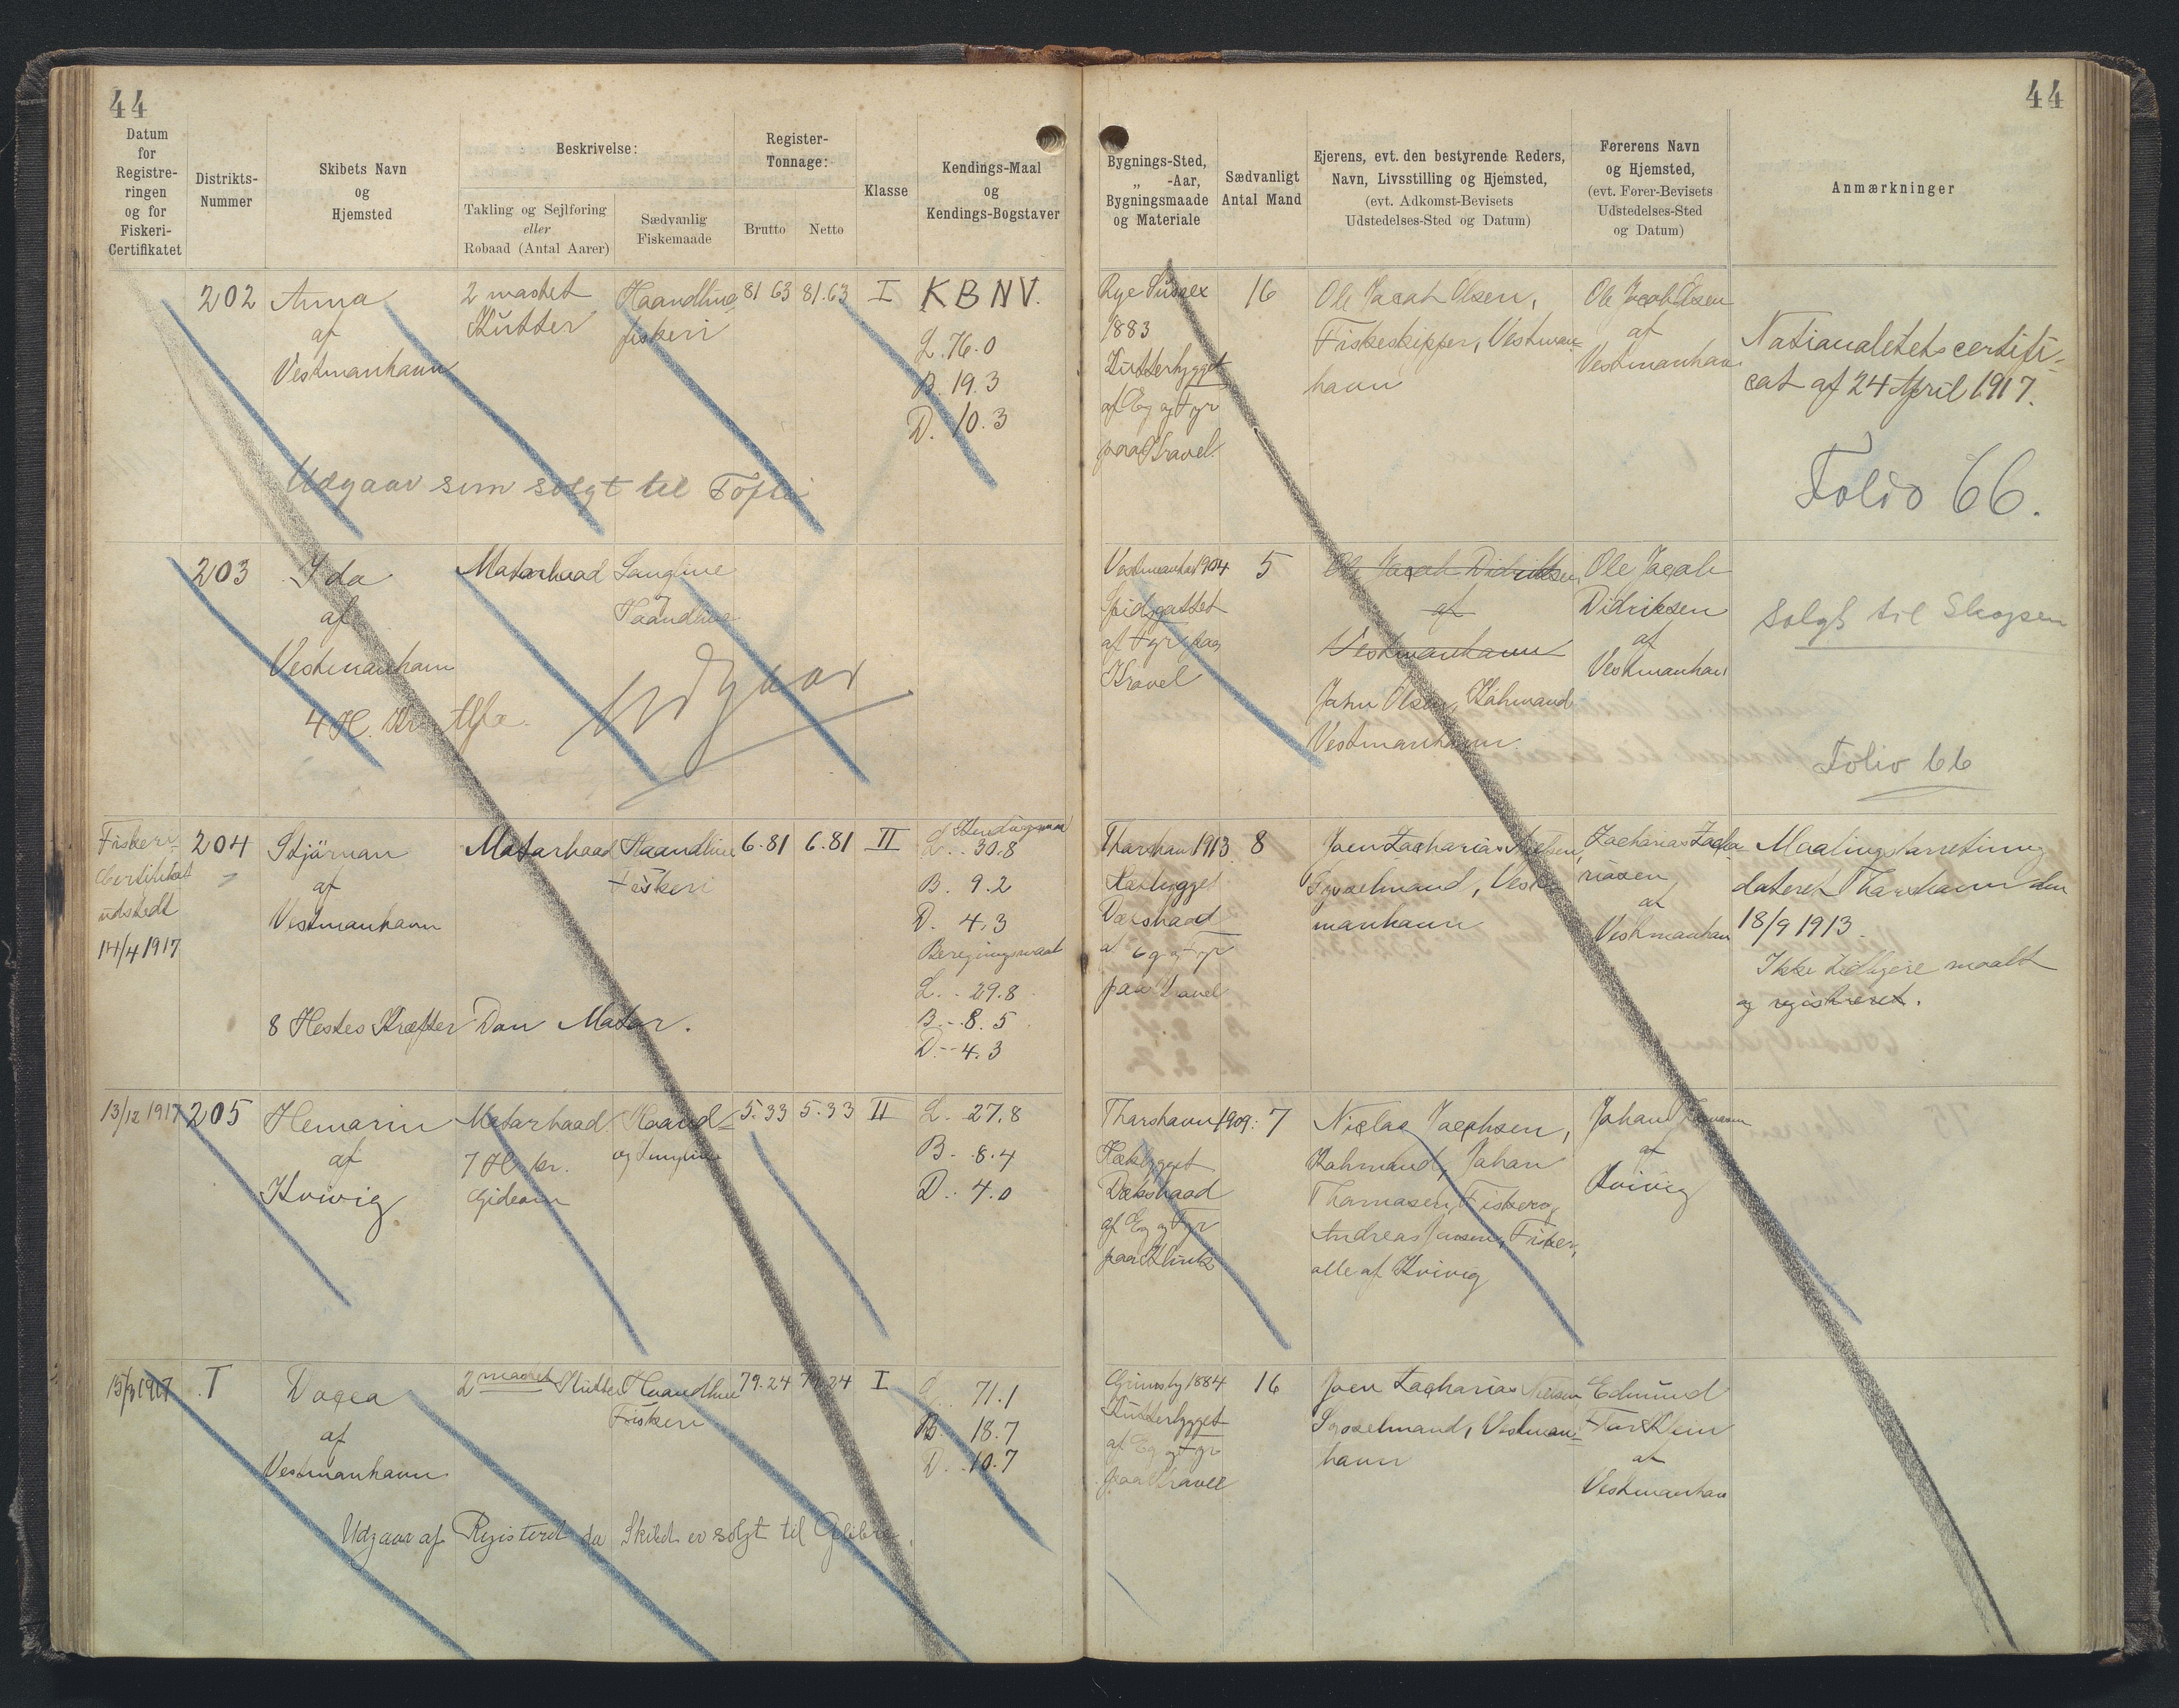 44
44
Datum
for
Registre-
ringen
og for
Fiskeri-
Certifikatet
Distrikts-
Nummer
Skibets Navn
og
Hjemsted
Beskrivelse:
Takling og Sejlføring
eller
Robaad (Antal Aarer)
Sædvanlig
Fiskemaade
Register-
Tonnage:
Brutto
Netto
Klasse
Kendings-Maal
og
Kendings-Bogstaver
Bygnings-Sted,
„ -Aar,
Bygningsmaade
og Materiale
Sædvanligt
Antal Mand
Ejerens, evt. den bestyrende Reders,
Navn, Livsstilling og Hjemsted,
(evt. Adkomst-Bevisets
Udstedelses-Sted og Datum)
Førerens Navn
og Hjemsted,
(evt. Fører-Bevisets
Udstedelses-Sted
og Datum)
Anmærkninger
202
Anna
af
Vestmanhavn
2 mastet
Kutter
Haandline
fiskeri
81 63
81.63
I
KBNV.
L. 76.0
B. 19.3
D. 10.3
Udgaar som solgt til Tofte
Rye Sussex
1883
Kutterbygget
af Eg og Fyr
paa Kravel
16
Ole Jacob Olsen,
Fiskeskipper, Vestman-
havn
Ole Jacob Olsen
af
Vestmanhavn
Nationalitetscertifi-
cat af 24 April 1917.
Folio 66.
203
Ida
af
Vestmanhavn
4 H. Kr.
Motorbaad
Langline
og
Haandline
Udgaar
Vestmanhavn 1904
Spidsgattet
af Fyr paa
Kravel
5
Ole Jacob Didriksen,
af
Vestmanhavn
John Olsen, Købmand
Vestmanhavn
Ole Jacob
Didriksen
af
Vestmanhavn
solgt til Skopen
Folio 66
Fiskeri-
Certifikat
udstedt
14/4 1917
204
Stjørnan
af
Vestmanhavn
8 Hestes Kræfter Dan Motor.
Motorbaad
Haandline
Fiskeri
6.81
6.81
II
Kendingsmaal
L. 30.8
B. 9.2
D. 4.3
Beregningsmaal
L. 29.8
B. 8.5
D. 4.3
Thorshavn 1913
Dæksbaad
af Eg og Fyr
paa Kravel
8
Joen Zacharias Nielsen,
Sysselmand, Vest-
manhavn
Zacharias Zacha-
riasen
af
Vestmanhavn
Maalingsforretning
dateret Thorshavn den
18/9 1913.
Ikke tidligere maalt
og registreret.
13/12 1917
205
Hemarin
af
Kvivig
Motorbaad.
7 H. kr.
Gideon
Haand-
og Langline
5.33
5.33
II
L. 27.8
B. 8.4
D. 4.0
Thorshavn 1909.
Hækbygget
Dæksbaad
af Eg og Fyr
paa Klink
7
Niclas Jacobsen,
Købmand, Johan
Thomasen, Fisker og
Andreas Joensen, Fisker,
alle af Kvivig
Johan Thomasen
af
Kvivig
15/3 1917
T
Dogea
af
Vestmanhavn
2 mastet Kutter
Haandline
Fiskeri
79.24
79.24
I
L. 71.1
B. 18.7
D. 10.7
Udgaar af Registeret da Skibet er solgt til
Grimsby 1884
Kutterbygget
af Eg og Fyr
paa Kravel
16
Joen Zacharias Nielsen
Sysselmand, Vestman-
havn
Edmund
af
Vestmanhavn